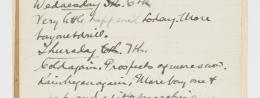 Wednesday Dec. 6th
Very little happened today. More
bayonet drill.
Thursday Dec. 7th.
Cold again. Prospects of more snow.
again. More bayonet